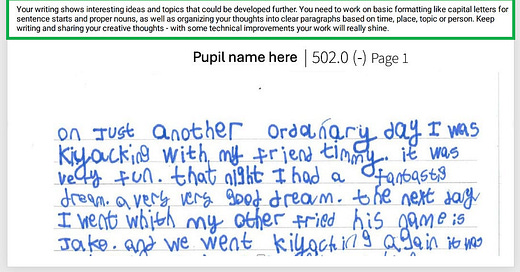 Your writing shows interesting ideas and topics that could be developed further. You need to work on basic formatting like capital letters for
sentence starts and proper nouns, as well as organizing your thoughts into clear paragraphs based on time, place, topic or person. Keep
writing and sharing your creative thoughts - with some technical improvements your work will really shine.
Pupil name here | 502.0 (-) Page 1
on Just another ordanary day I was
Kiyacking with my friend timmy. it was
very fun. that night I had a fantasty
dream. a very very good dream. the next day
I went whith my other fried his name is
Jake. and we went kiyaching again it was